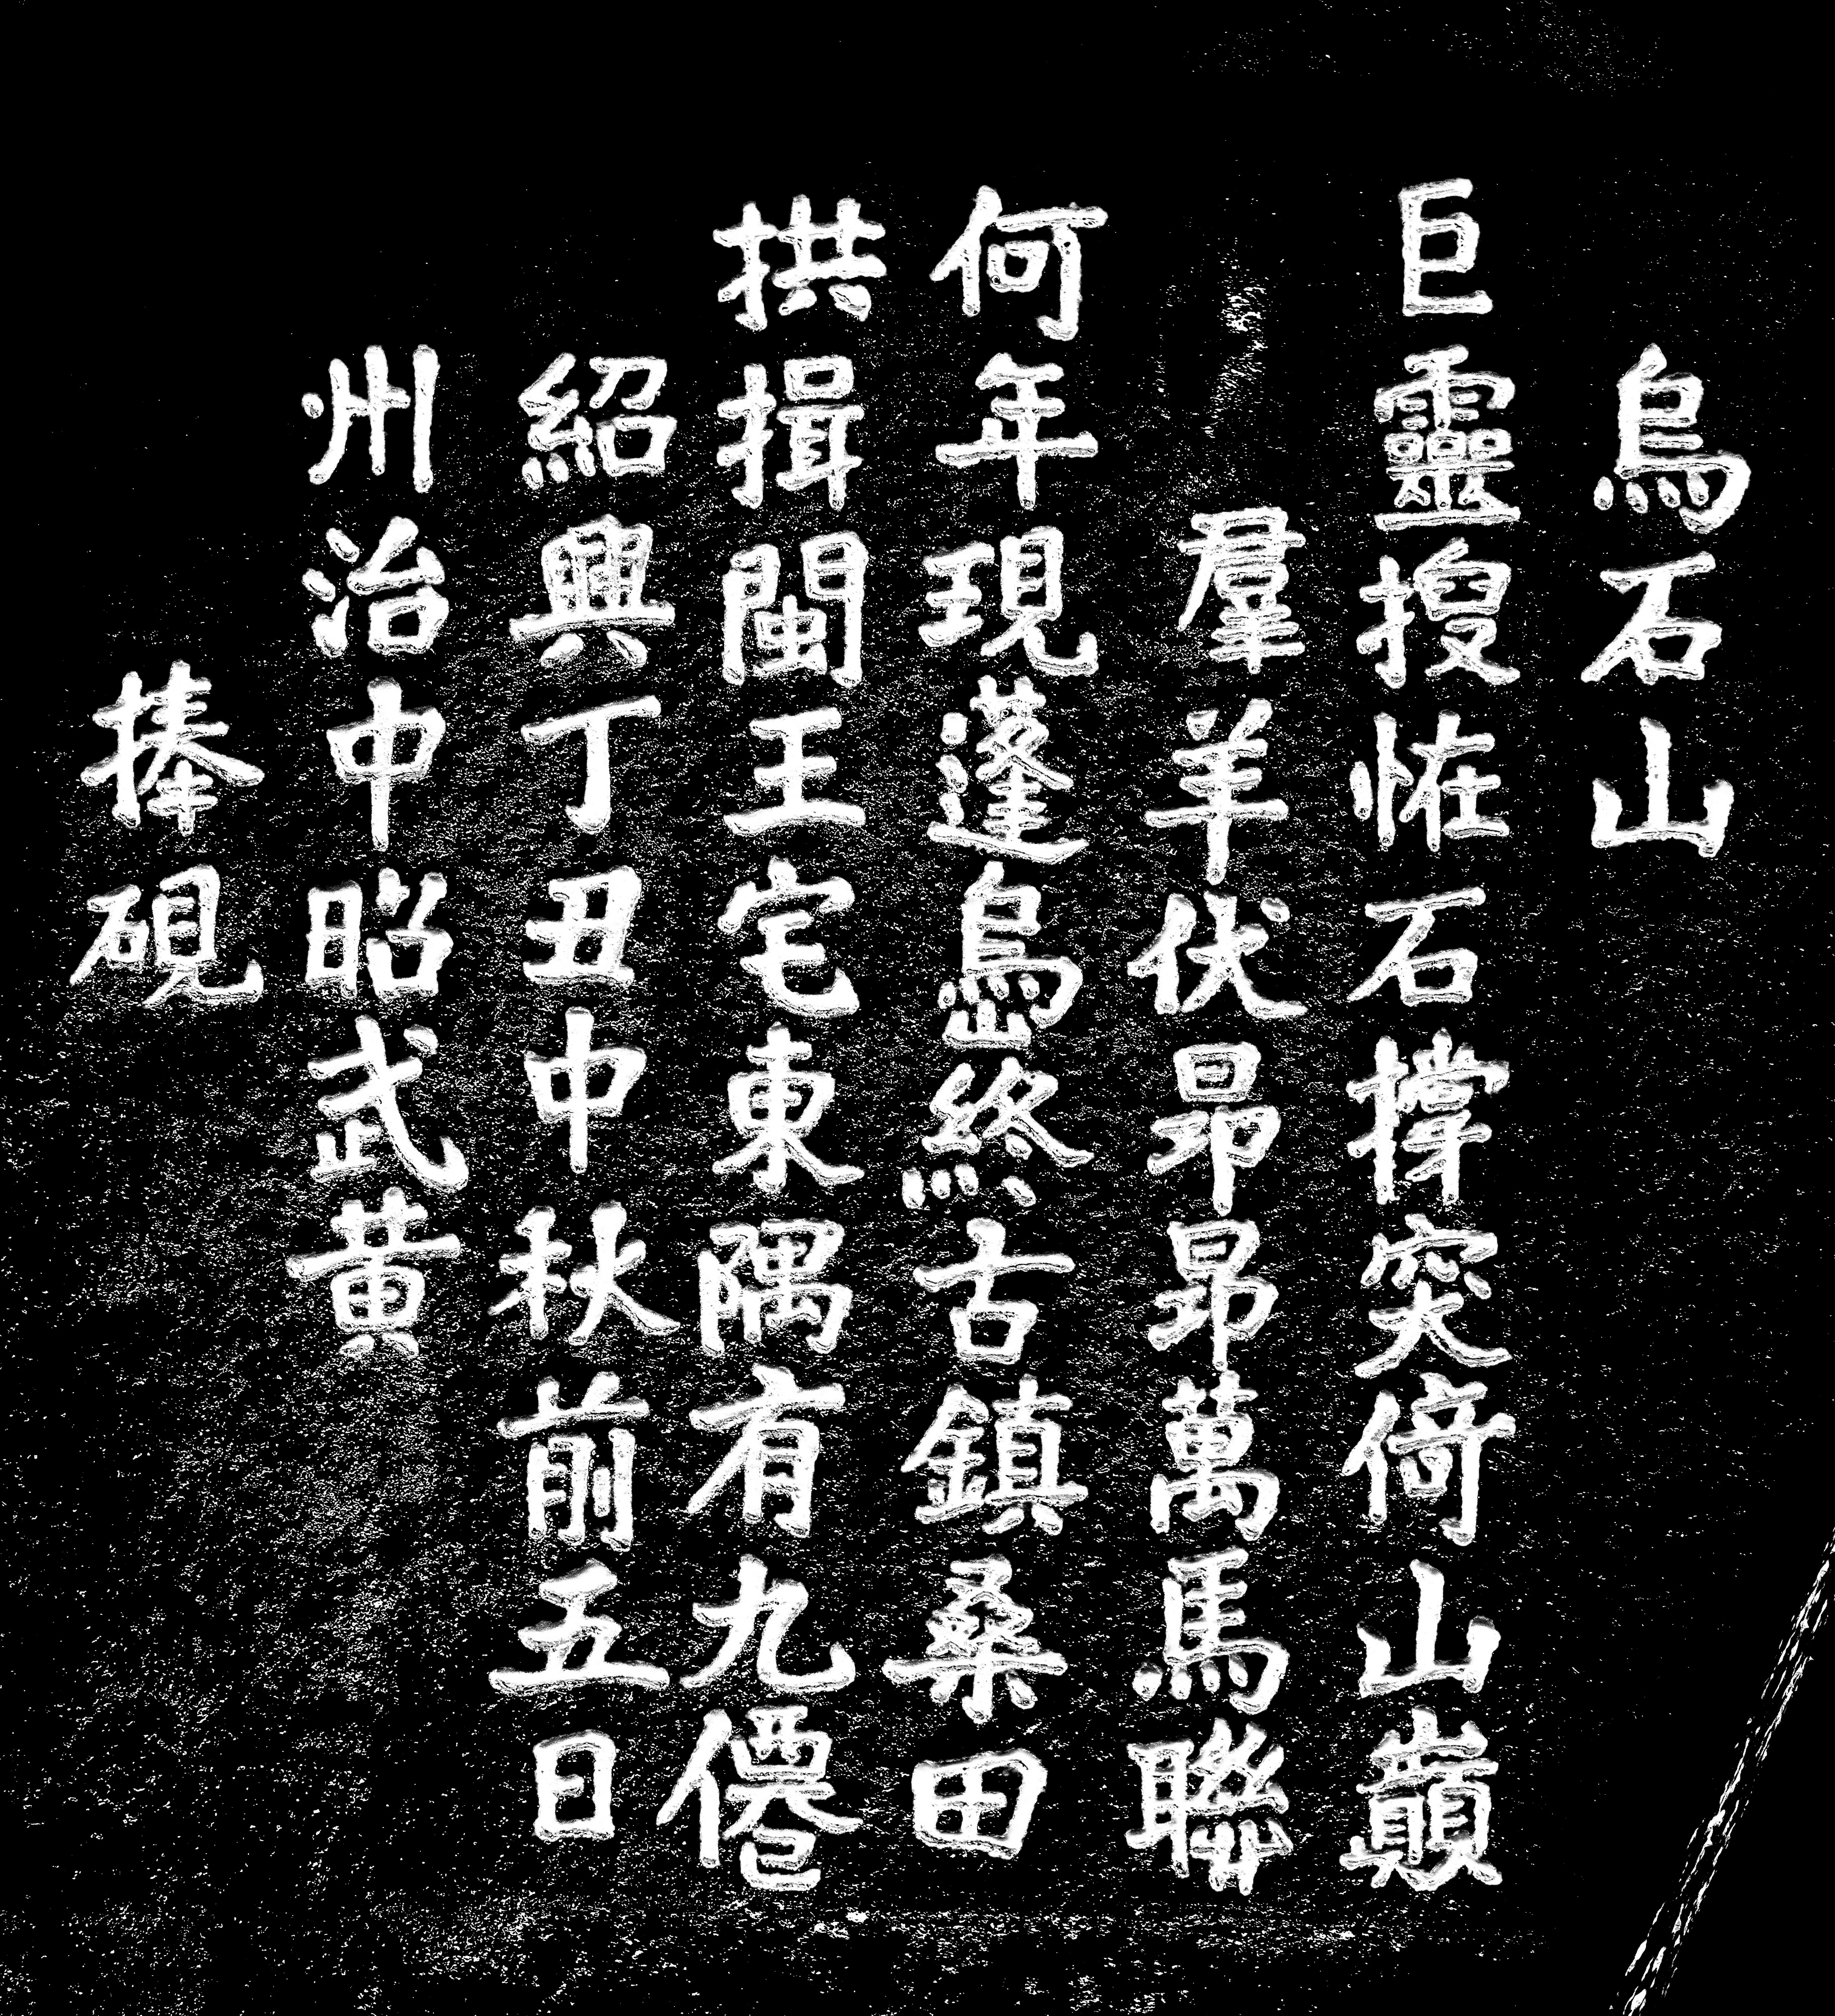 烏石山
巨靈搜恠石撐突倚山巔
羣羊伏昻昻萬馬聯
何年現蓬島終古鎮桑田
拱揖閩王宅東隅有九僊
紹興丁丑中秋前五日
州治中昭武黄
捧硯